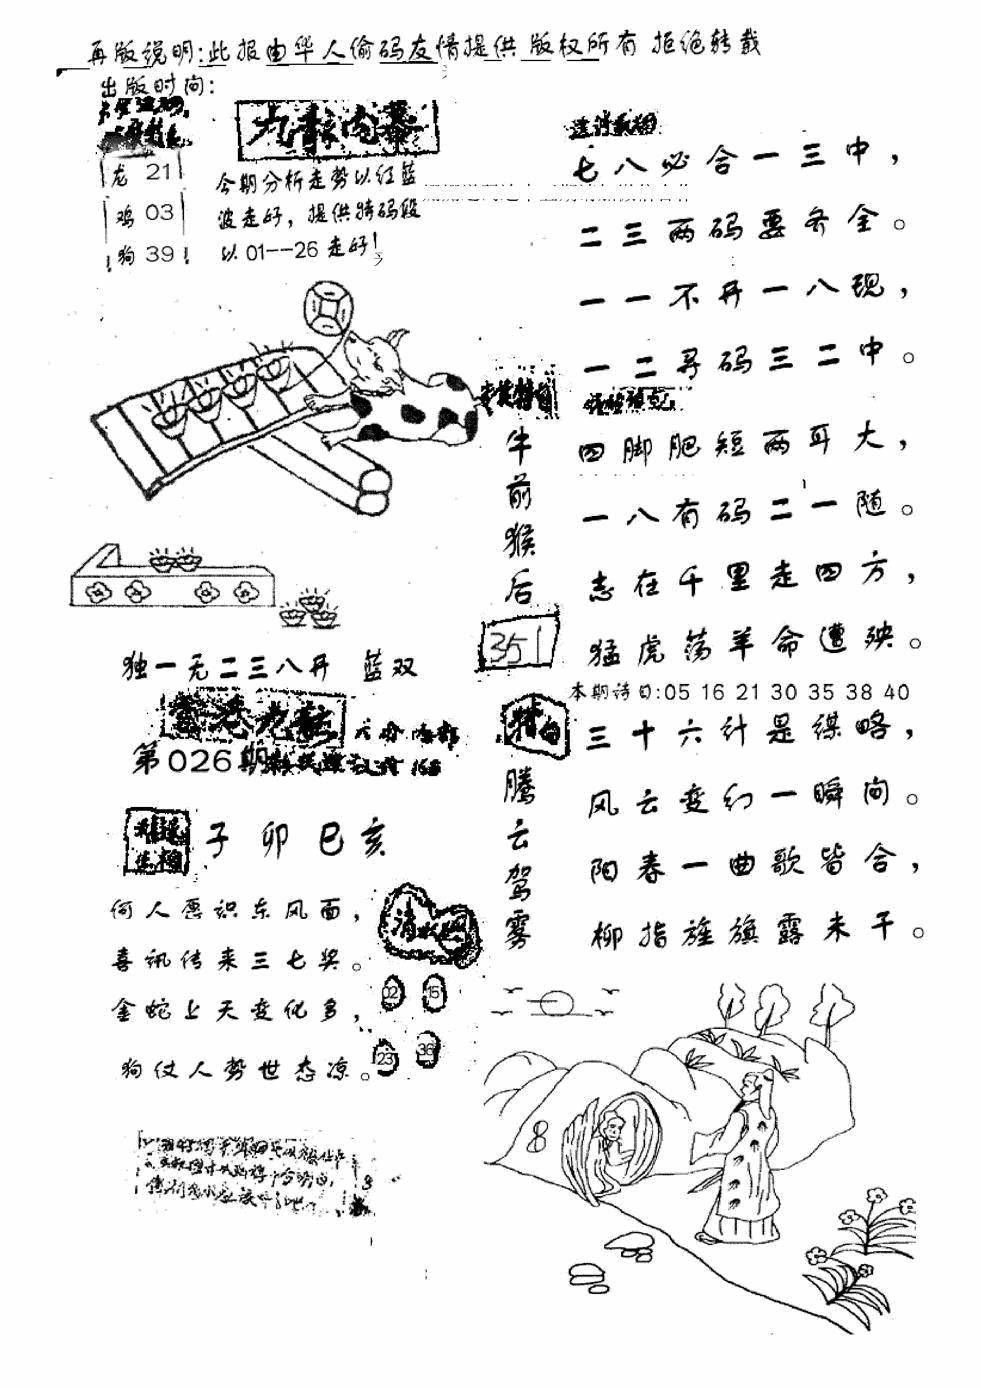 再版说明:此报由华人偷码友情提供 版权所有 拒绝转载
出版时间:
龙 21
鸡 03
狗 39
九龍内幕
今期分析走势以红蓝
波走好，提供特码段
以01--26走好!
七八必合一三中，
二三两码要齐全。
一一不开一八现，
一二寻码三二中。
四脚肥短两耳大，
一八有码二一随。
志在千里走四方，
猛虎荡羊命遭殃。
牛前猴后
351
独一无二三八开 蓝双
本期诗日:05 16 21 30 35 38 40
香港九龍
第026期
特肖
腾云驾雾
三十六计是谋略，
风云变幻一瞬间。
阳春一曲歌皆合，
柳指旌旗露未干。
子卯巳亥
何人愿识东风面，
喜讯传来三七奖。
金蛇上天变化多，
狗仗人势世态凉。
02 15
23 36
8